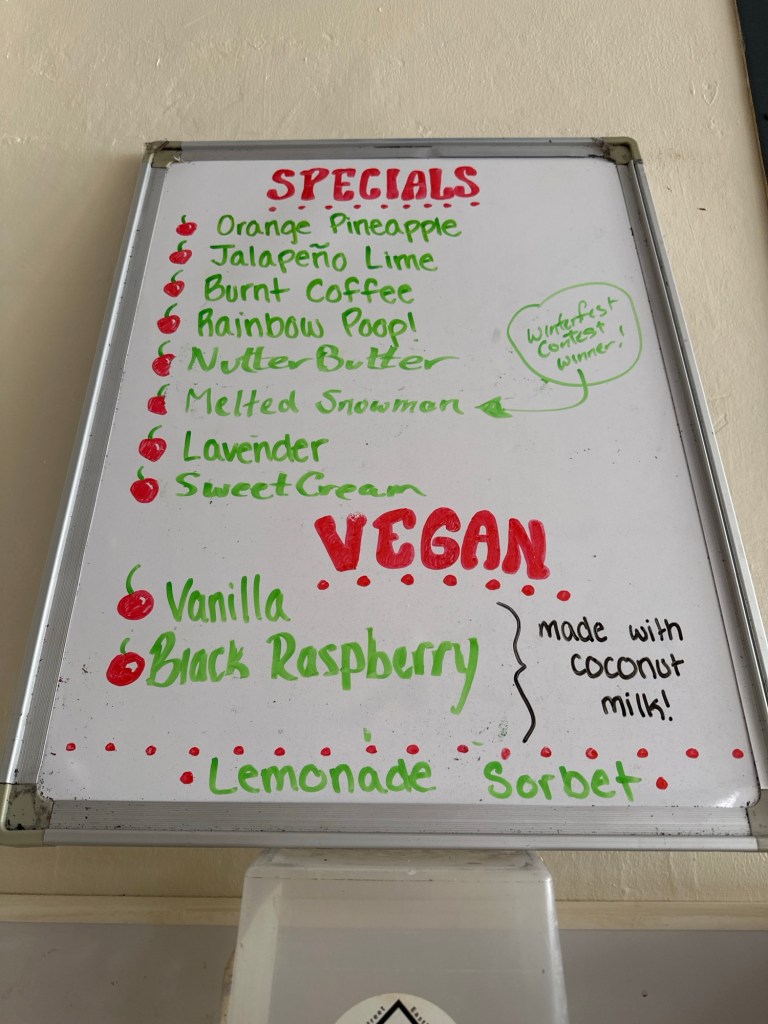 SPECIALS
Orange Pineapple
Jalapeño Lime
Burnt Coffee
Rainbow Poop!
Nutter Butter
Melted Snowman
Winterfest
Contest
Winner!
Lavender
Sweet Cream
VEGAN
Vanilla
Black Raspberry
made with
coconut
milk!
Lemonade Sorbet